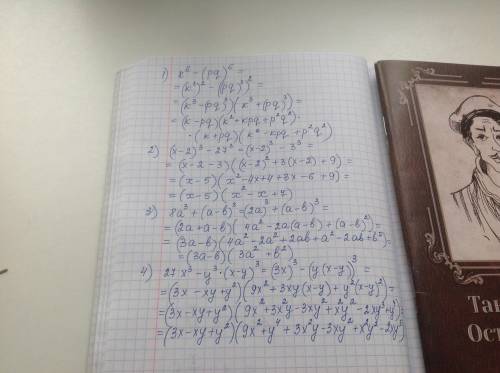 1) k⁶ - (pq)⁶ =
= (k³)² - (pq)³)² =
= (k³ - pq)³)(k³ + (pq)³) =
= (k - pq)(k² + kpq + p²q²) ·
· (k + pq)(k² - kpq + p²q²)
2) (x-2)³ - 27 = (x-2)³ - 3³ =
= (x-2-3)((x-2)² + 3(x-2) + 9) =
= (x-5)(x² - 4x + 4 + 3x - 6 + 9) =
= (x-5)(x² - x + 7)
3) 8a³ + (a-b)³ = (2a)³ + (a-b)³ =
= (2a + a - b)(4a² - 2a(a-b) + (a-b)²) =
= (3a - b)(4a² - 2a² + 2ab + a² - 2ab + b²) =
= (3a - b)(3a² + b²)
4) 27x³ - y³ · (x-y)³ = (3x)³ - (y(x-y))³ =
= (3x - xy + y²)(9x² + 3xy(x-y) + y²(x-y)²) =
= (3x - xy + y²)(9x² + 3x²y - 3xy² + x²y² - 2xy³ + y⁴) =
= (3x - xy + y²)(9x² + y⁴ + 3x²y - 3xy² + x²y² - 2xy³)
Тан
Ост